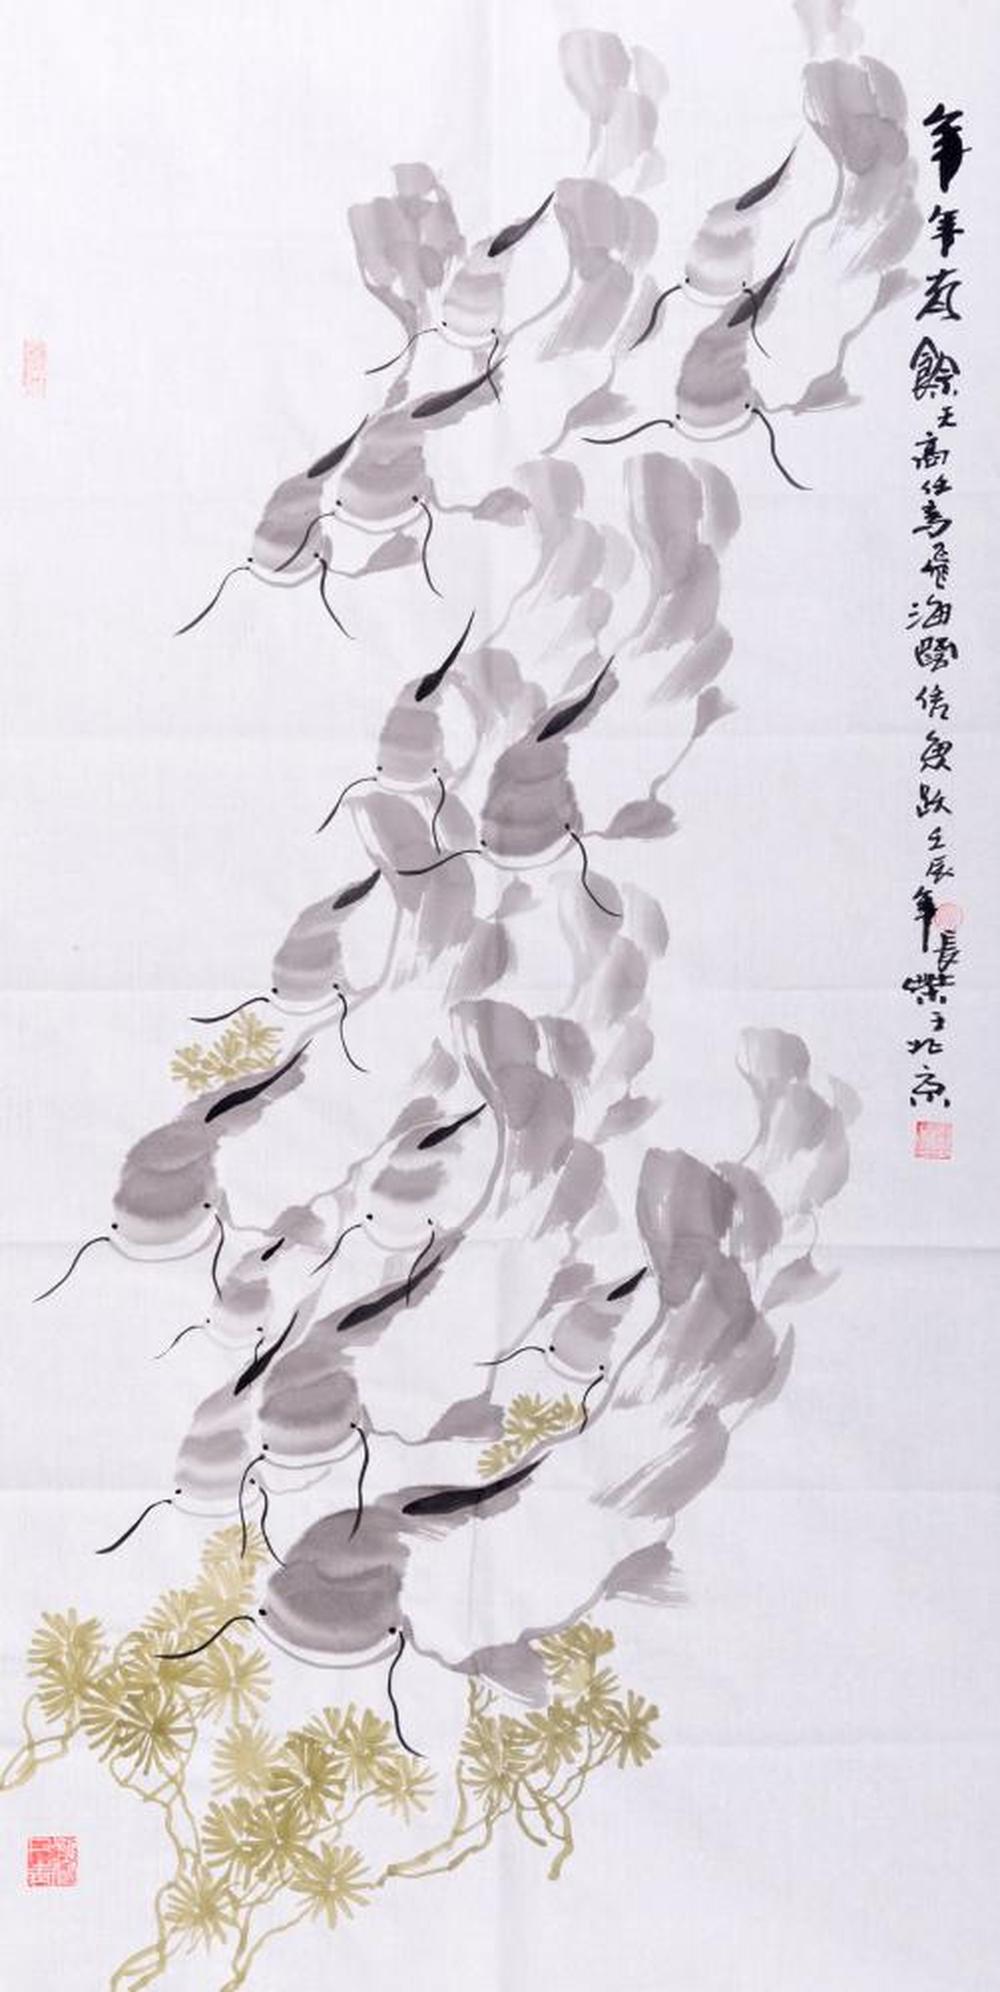 年年有餘天高任鳥飛海闊信魚躍壬辰年長榮于北京